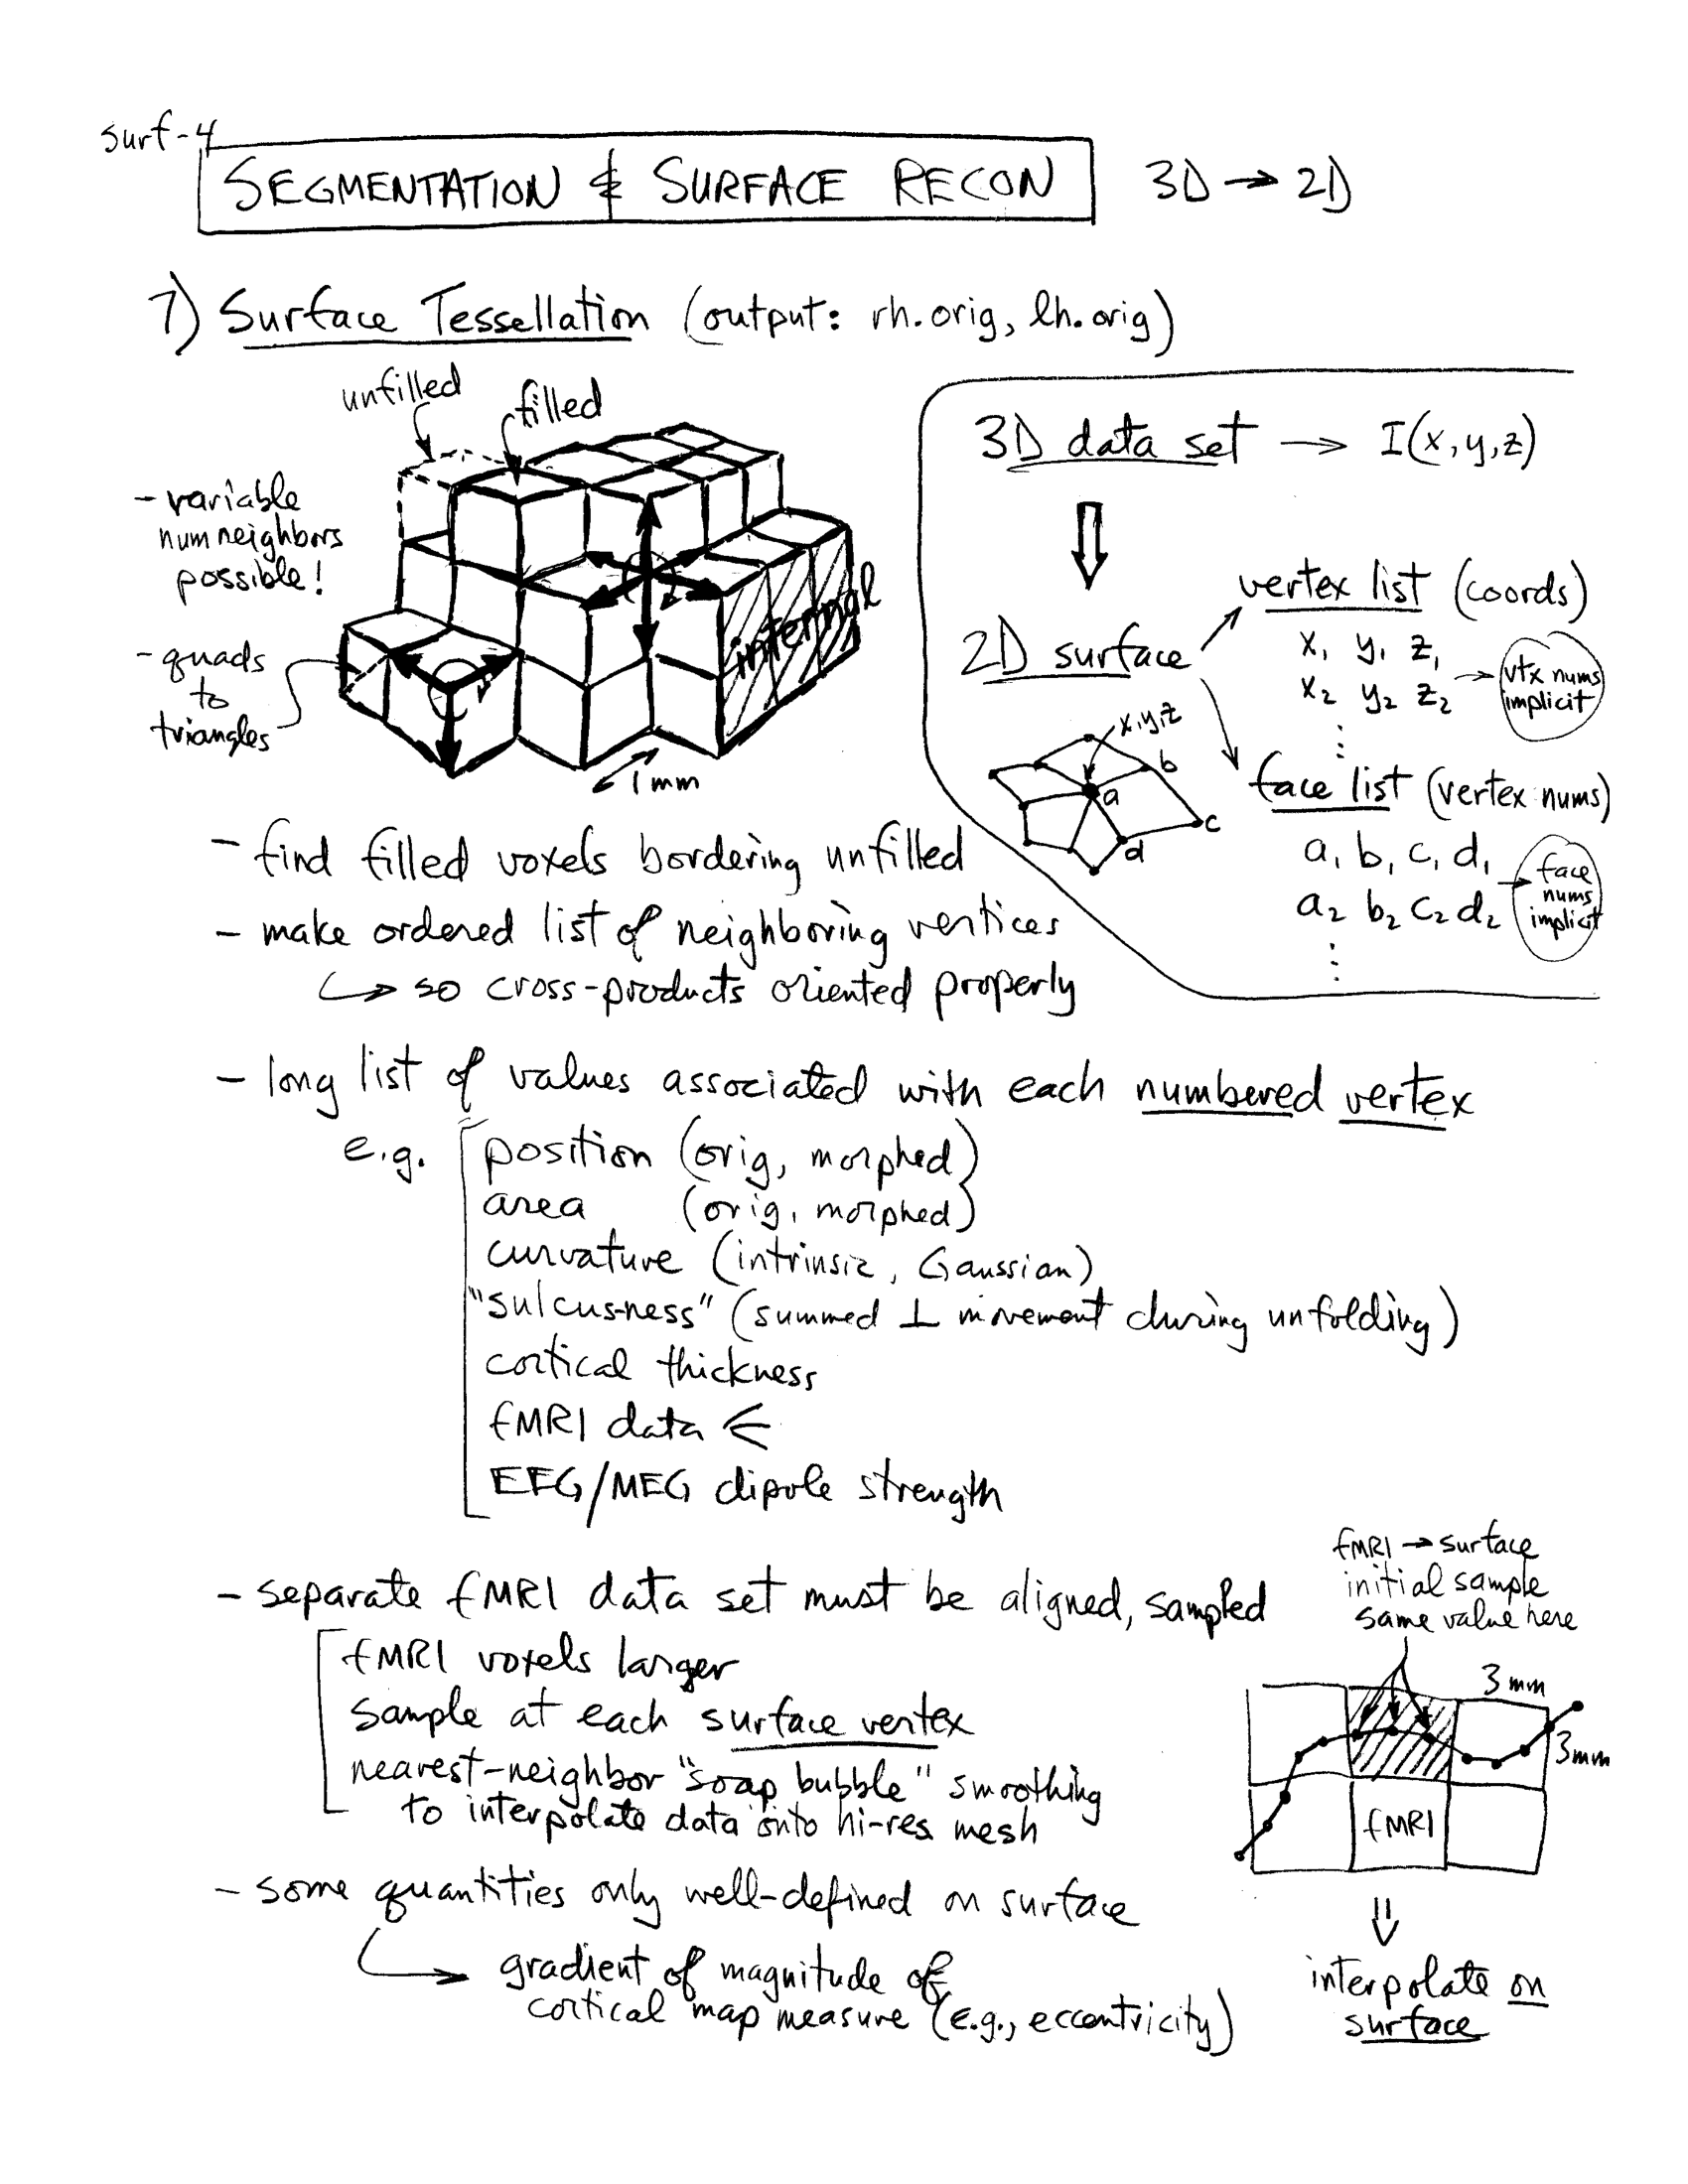 surf-4
SEGMENTATION & SURFACE RECON 3D → 2D
7) Surface Tessellation (output: rh.orig, lh.orig)
unfilled
filled
- variable
num neighbors
possible!
- quads
to
triangles
internal
1 mm
3D data set → I(x,y,z)
2D surface
vertex list (coords)
x₁ y₁ z₁
x₂ y₂ z₂ → vtx nums
implicit
⋮
x,y,z
a
b
c
d
face list (vertex nums)
a₁ b₁ c₁ d₁
a₂ b₂ c₂ d₂ → face
nums
implicit
⋮
- find filled voxels bordering unfilled
- make ordered list of neighboring vertices
↳ so cross-products oriented properly
- long list of values associated with each numbered vertex
e.g. position (orig, morphed)
area (orig, morphed)
curvature (intrinsic, Gaussian)
"sulcus-ness" (summed ⊥ movement during unfolding)
cortical thickness
fMRI data ⇐
EEG/MEG dipole strength
- separate fMRI data set must be aligned, sampled
fMRI voxels larger
sample at each surface vertex
nearest-neighbor "soap bubble" smoothing
to interpolate data onto hi-res mesh
fMRI → surface
initial sample
same value here
3 mm
3mm
fMRI
⇓
interpolate on
surface
- some quantities only well-defined on surface
↳ gradient of magnitude of
cortical map measure (e.g., eccentricity)